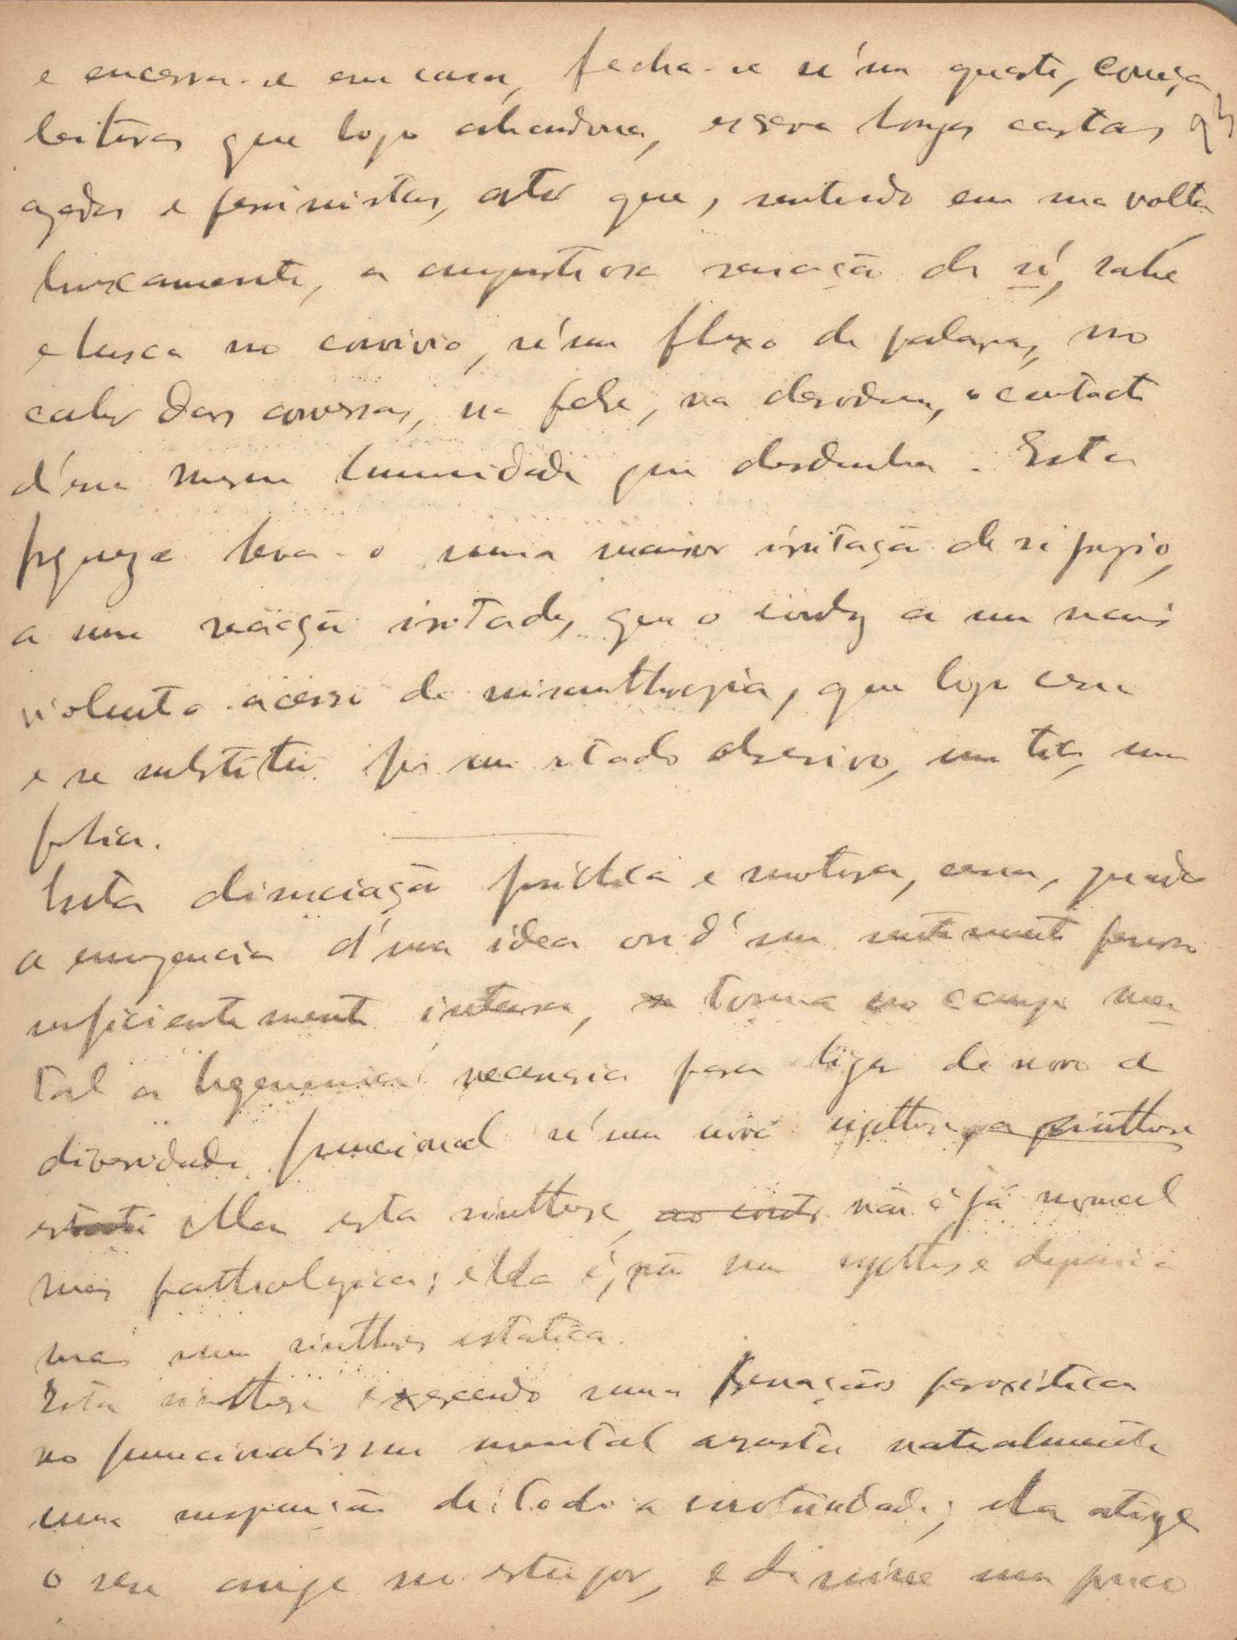 e encerra-se em casa, fecha-se n'um quarto, começa
leituras que logo abandona, escreve longas cartas
azedas e pessimistas, até que, sentindo em sua volta
bruscamente, a angustiosa sensação de si, sahe
e busca no convivio, n'um fluxo de palavras, no
calor das conversas, na febre, na desordem, o contacto
d'essa mesma humanidade que desdenha. Esta
fraqueza leva-o a uma maior irritação de si proprio,
a uma reacção irritada, que o conduz a um mais
violento accesso de misanthropia, que logo cessa
e se substitue por um estado obsessivo, um tic, uma
fobia.
Esta dissociação psichica e motora, cessa, quando
a emergencia d'uma idea ou d'um sentimento
sufficientemente intensa, toma no campo men
tal a hegemonia necessaria para ligar de novo a
diversidade funcional n'uma nova synthese, a sinthese
Mas esta sinthese, não é já normal
mas pathologica; ella é, não uma synthese dynamica
mas uma sinthese estatica.
Esta sinthese exercendo uma
no funcionalismo mental arrasta naturalmente
uma suspensão de toda a motricidade; ella atinge
o seu auge no estupor, e diminue um pouco